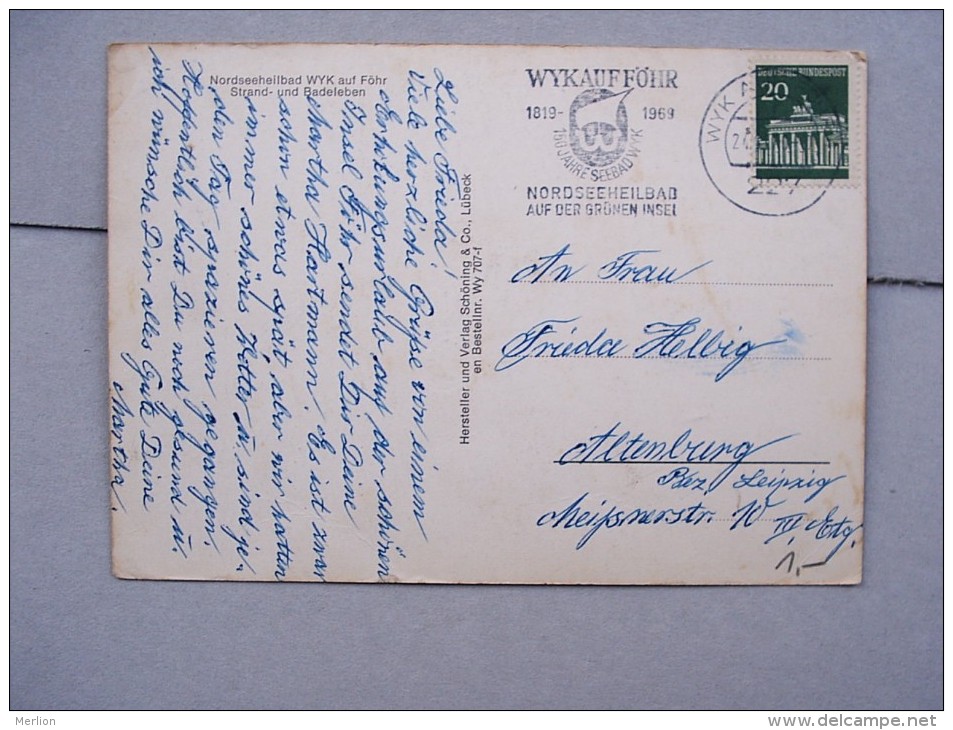 Nordseeheilbad WYK auf Föhr
Strand- und Badeleben
Liebe Frieda!
Viele herzliche Grüße von einem
Erholungsurlaub auf der schönen
Insel Föhr sendet Dir Deine
Martha Hartmann. Es ist zwar
schon etwas spät, aber wir hatten
immer schönes Wetter u. sind je-
den Tag spazieren gegangen.
Hoffentlich bist Du noch gesund u.
ich wünsche Dir alles Gute Deine
Martha.
Hersteller und Verlag Schöning & Co., Lübeck
en Bestellnr. Wy 707-f
WYK AUF FÖHR
1819-1969
150 JAHRE SEEBAD WYK
NORDSEEHEILBAD
AUF DER GRÜNEN INSEL
WYK
227
DEUTSCHE BUNDESPOST
20
An Frau
Frieda Helbig
Altenburg
Bez. Leipzig
Meißnerstr. 10
IV. Etg.
1,-
Merlion
www.delcampe.net